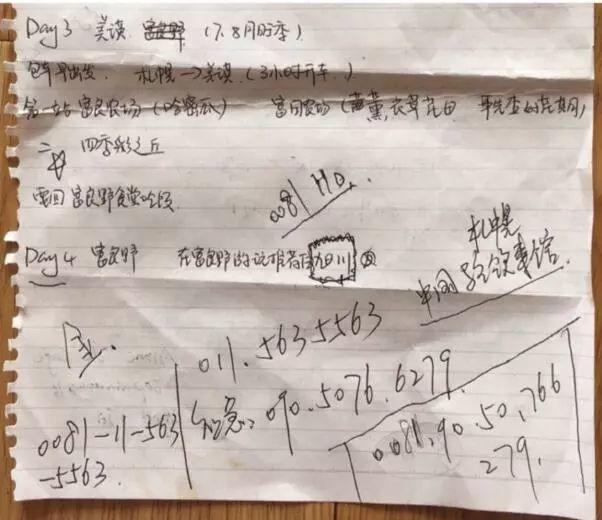 Day 3 美瑛 富良野 (7.8月旺季)
包车早出发. 札幌→美瑛.(3小时开车.)
第一站 富良农场(哈密瓜) 富田农场(薰衣草花田 事先查好花期)
二 四季彩之丘
返回富良野食堂吃饭
0081 HO.
Day 4 富良野 在富良野的话推荐住旭川
札幌
中国 总领事馆.
011.563.5563
0081-11-563
-5563.
紧急: 090.5076.6279.
0081.90.50.766
279.